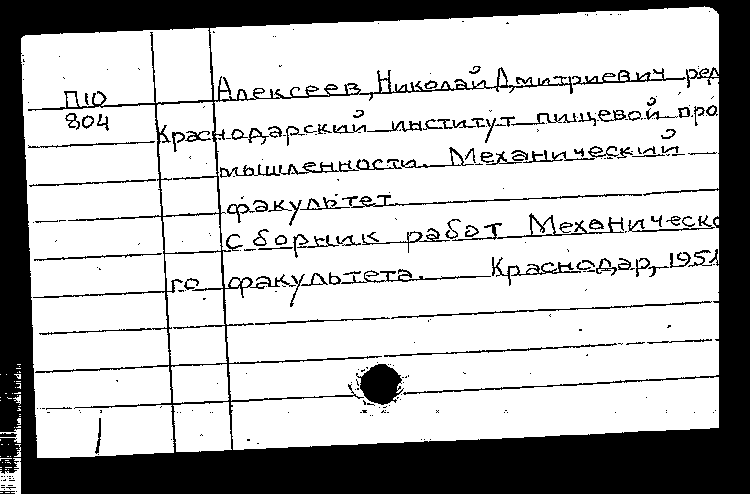 Алексеев, Николай Дмитриевич ред
П10
804
Краснодарский институт пищевой про
мышленности. Механический
факультет
Сборник работ Механическо
го факультета. Краснодар, 1951